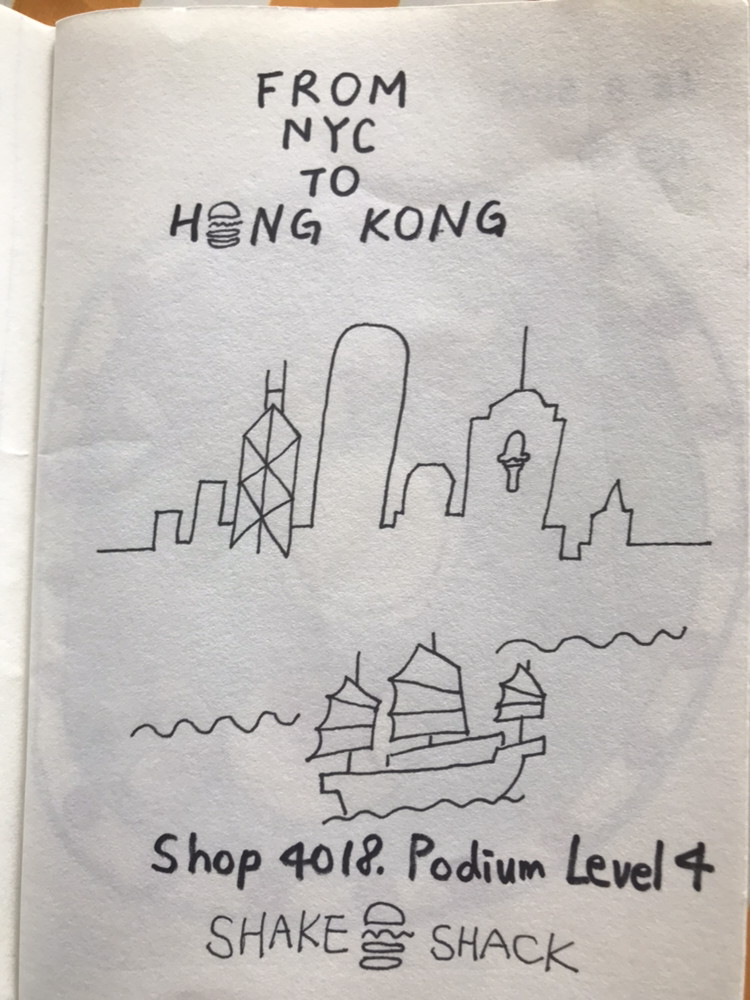 FROM
NYC
TO
HONG KONG
Shop 4018. Podium Level 4
SHAKE SHACK